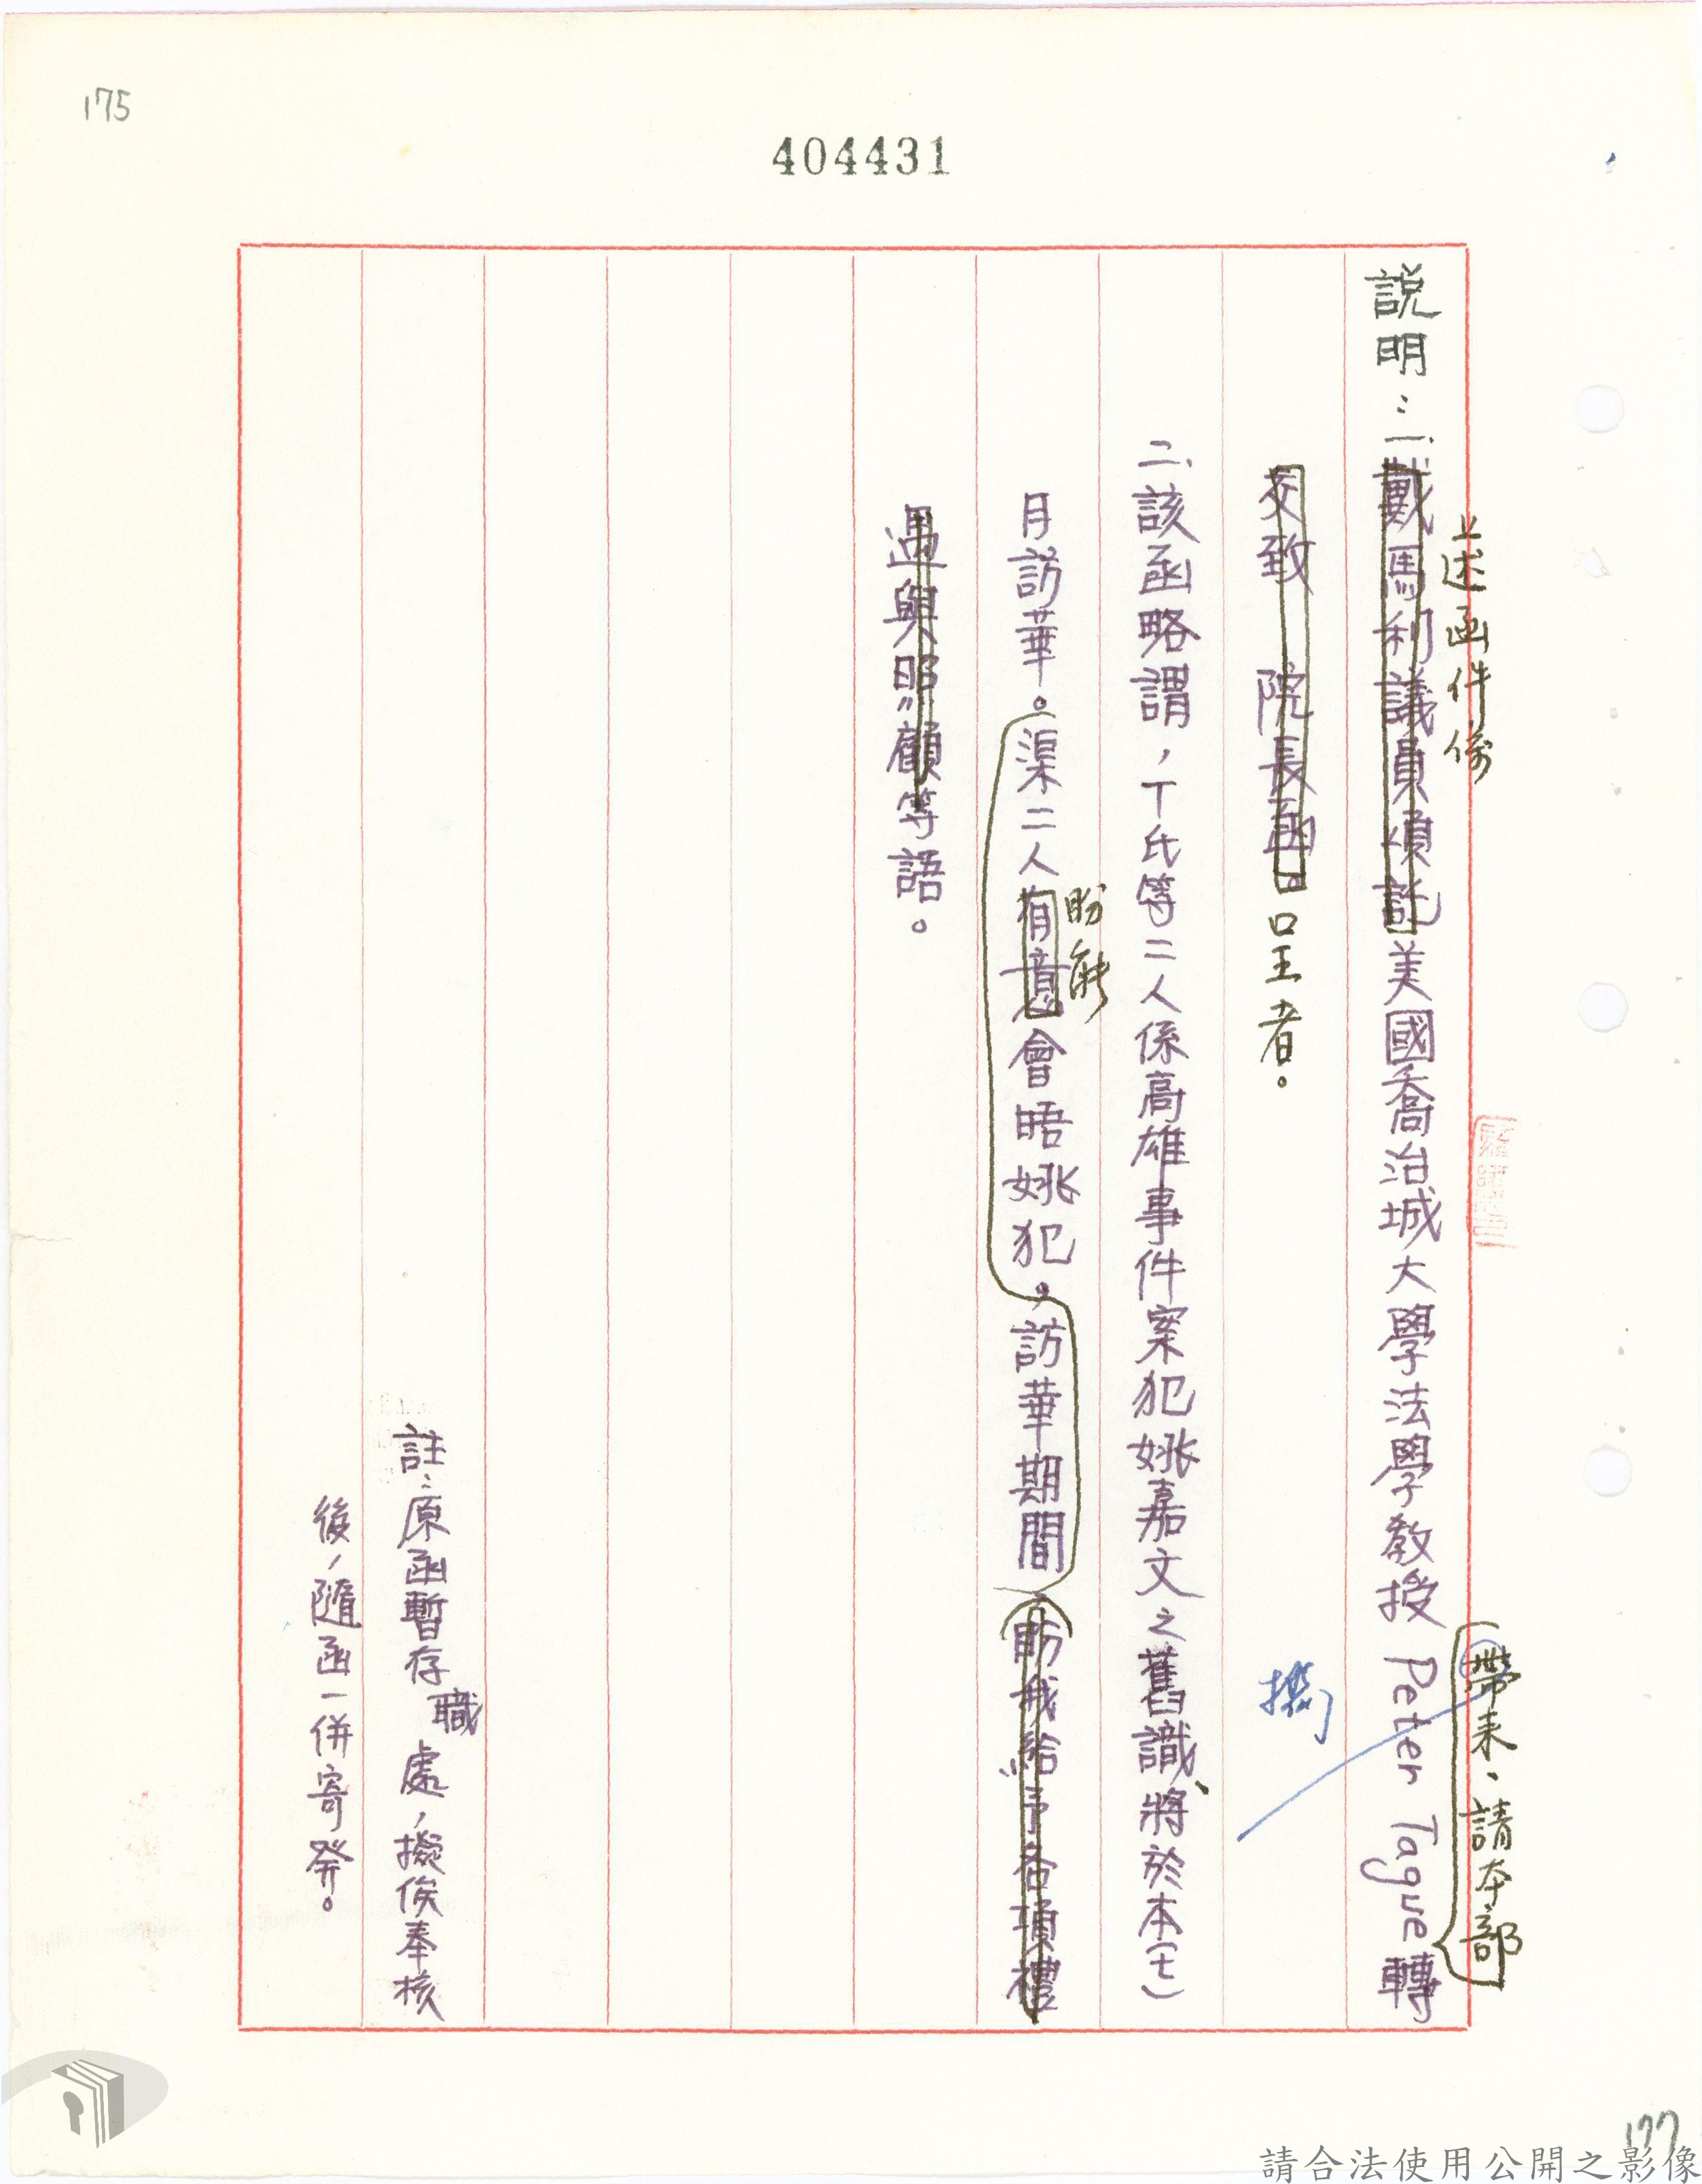 175
404431
上述函件係
帶来，請本部
說明：一、戴馬利議員煩託美國喬治城大學法學教授 Peter Tague 轉
交致　院長函。呈者。
携
二、該函略謂，丁氏等二人係高雄事件案犯姚嘉文之舊識、將於本(七)
盼能
月訪華。渠二人有意會晤姚犯。，訪華期間，盼我給予各項禮
遇與照顧等語。
註：原函暫存職處，擬俟奉核
後，隨函一併寄發。
177
請合法使用公開之影像